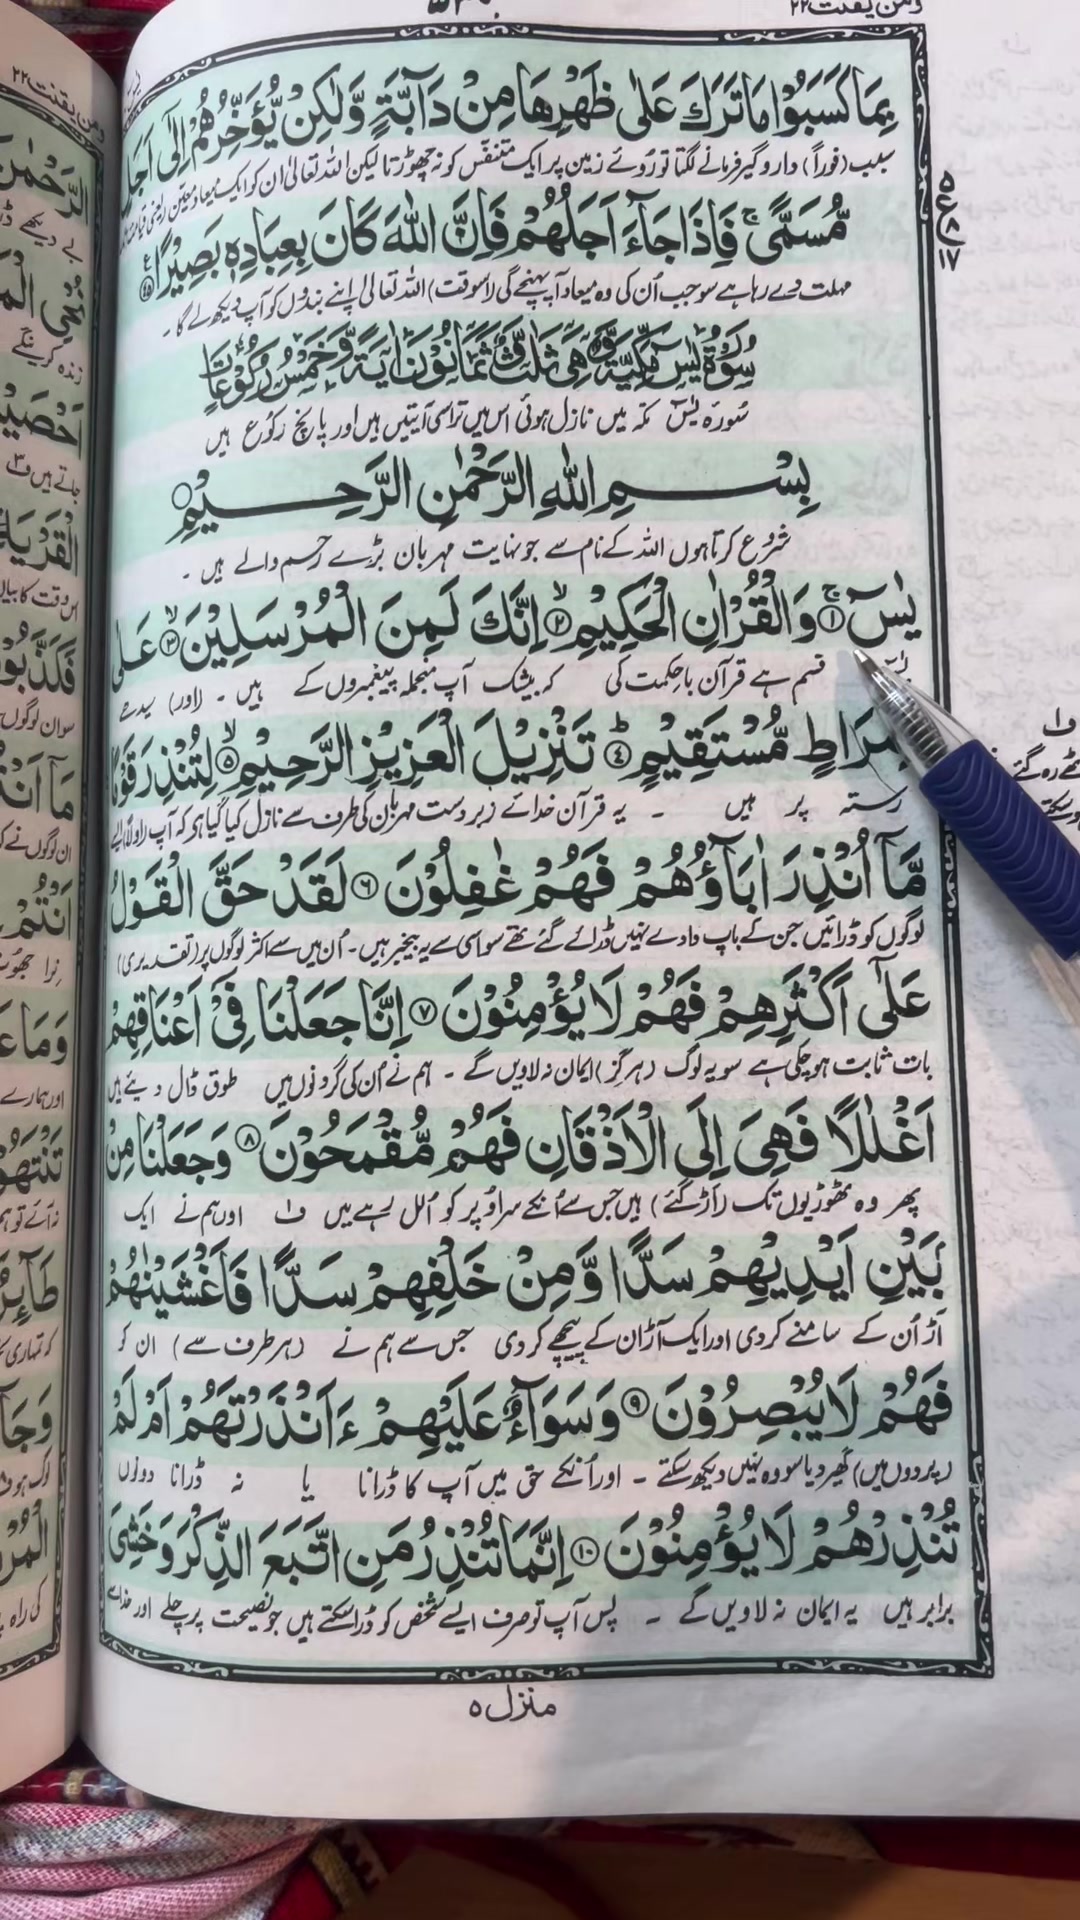 ومن یقنت ۲۲
بِمَا كَسَبُوْا مَا تَرَكَ عَلٰی ظَهْرِهَا مِنْ دَآبَّةٍ وَّلٰكِنْ یُّؤَخِّرُهُمْ اِلٰۤی اَجَلٍ
بسبب (فوراً) دارو گیر فرمانے لگتا تو روئے زمین پر ایک متنفس کو نہ چھوڑتا لیکن اللہ تعالیٰ ان کو ایک میعاد معین
مُّسَمًّی ۚ فَاِذَا جَآءَ اَجَلُهُمْ فَاِنَّ اللّٰهَ كَانَ بِعِبَادِهٖ بَصِیْرًا ۝۴۵
مہلت دے رہا ہے سو جب اُن کی وہ میعاد آپہنچے گی (اسوقت) اللہ تعالیٰ اپنے بندوں کو آپ دیکھ لے گا ۔
سُوْرَةُ یٰسٓ مَكِّیَّةٌ وَّهِیَ ثَلٰثٌ وَّثَمَانُوْنَ اٰیَةً وَّخَمْسُ رُكُوْعَاتٍ
سُورہ یٰسٓ مکہ میں نازل ہوئی اس میں تراسی آیتیں ہیں اور پانچ رکوع ہیں
بِسْمِ اللّٰهِ الرَّحْمٰنِ الرَّحِیْمِ ۝
شروع کرتا ہوں اللہ کے نام سے جو نہایت مہربان بڑے رحم والے ہیں ۔
یٰسٓ ۚ ۝۱ وَالْقُرْاٰنِ الْحَكِیْمِ ۙ ۝۲ اِنَّكَ لَمِنَ الْمُرْسَلِیْنَ ۙ ۝۳ عَلٰی
قسم ہے قرآن باحکمت کی کہ بیشک آپ منجملہ پیغمبروں کے ہیں ۔ (اور) سیدھے
صِرَاطٍ مُّسْتَقِیْمٍ ؕ ۝۴ تَنْزِیْلَ الْعَزِیْزِ الرَّحِیْمِ ۙ ۝۵ لِتُنْذِرَ قَوْمًا
رستہ پر ہیں ۔ یہ قرآن خدائے زبردست مہربان کی طرف سے نازل کیا گیا ہے کہ آپ
مَّاۤ اُنْذِرَ اٰبَآؤُهُمْ فَهُمْ غٰفِلُوْنَ ۝۶ لَقَدْ حَقَّ الْقَوْلُ
لوگوں کو ڈرائیں جن کے باپ دادے نہیں ڈرائے گئے تھے سو اسی سے یہ بیخبر ہیں ۔ اُن میں سے اکثر لوگوں پر (تقدیری)
عَلٰۤی اَكْثَرِهِمْ فَهُمْ لَا یُؤْمِنُوْنَ ۝۷ اِنَّا جَعَلْنَا فِیْۤ اَعْنَاقِهِمْ
بات ثابت ہو چکی ہے سو یہ لوگ (ہرگز) ایمان نہ لاویں گے ۔ ہم نے اُن کی گردنوں میں طوق ڈال دیئے ہیں
اَغْلٰلًا فَهِیَ اِلَی الْاَذْقَانِ فَهُمْ مُّقْمَحُوْنَ ۝۸ وَجَعَلْنَا مِنْۢ
پھر وہ ٹھوڑیوں تک (اڑ گئے) ہیں جس سے اُنکے سر اوپر کو اُلل رہے ہیں ف۱ اور ہم نے ایک
بَیْنِ اَیْدِیْهِمْ سَدًّا وَّمِنْ خَلْفِهِمْ سَدًّا فَاَغْشَیْنٰهُمْ
آڑ اُن کے سامنے کردی اور ایک آڑ ان کے پیچھے کردی جس سے ہم نے (ہر طرف سے) ان کو
فَهُمْ لَا یُبْصِرُوْنَ ۝۹ وَسَوَآءٌ عَلَیْهِمْ ءَاَنْذَرْتَهُمْ اَمْ لَمْ
(پردوں میں) گھیر دیا سو وہ نہیں دیکھ سکتے ۔ اور اُنکے حق میں آپ کا ڈرانا یا نہ ڈرانا دونوں
تُنْذِرْهُمْ لَا یُؤْمِنُوْنَ ۝۱۰ اِنَّمَا تُنْذِرُ مَنِ اتَّبَعَ الذِّكْرَ وَخَشِیَ
برابر ہیں یہ ایمان نہ لاویں گے ۔ پس آپ تو صرف ایسے شخص کو ڈرا سکتے ہیں جو نصیحت پر چلے اور خدا سے
منزل ۵